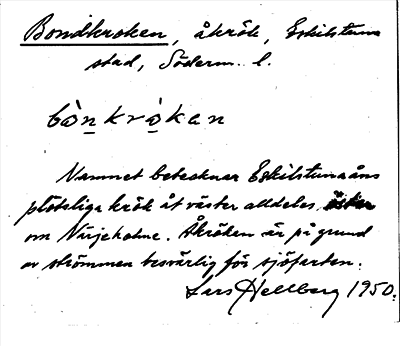 Bondkroken, åkrök, Eskilstuna
stad, Söderm. l.
bò̀n krò̀kan
Namnet betecknar Eskilstunaåns
plötsliga krök åt väster alldeles öster
om Virjeholme. Åkröken är på grund
av strömmen besvärlig för sjöfarten.
Lars Hellberg 1950.